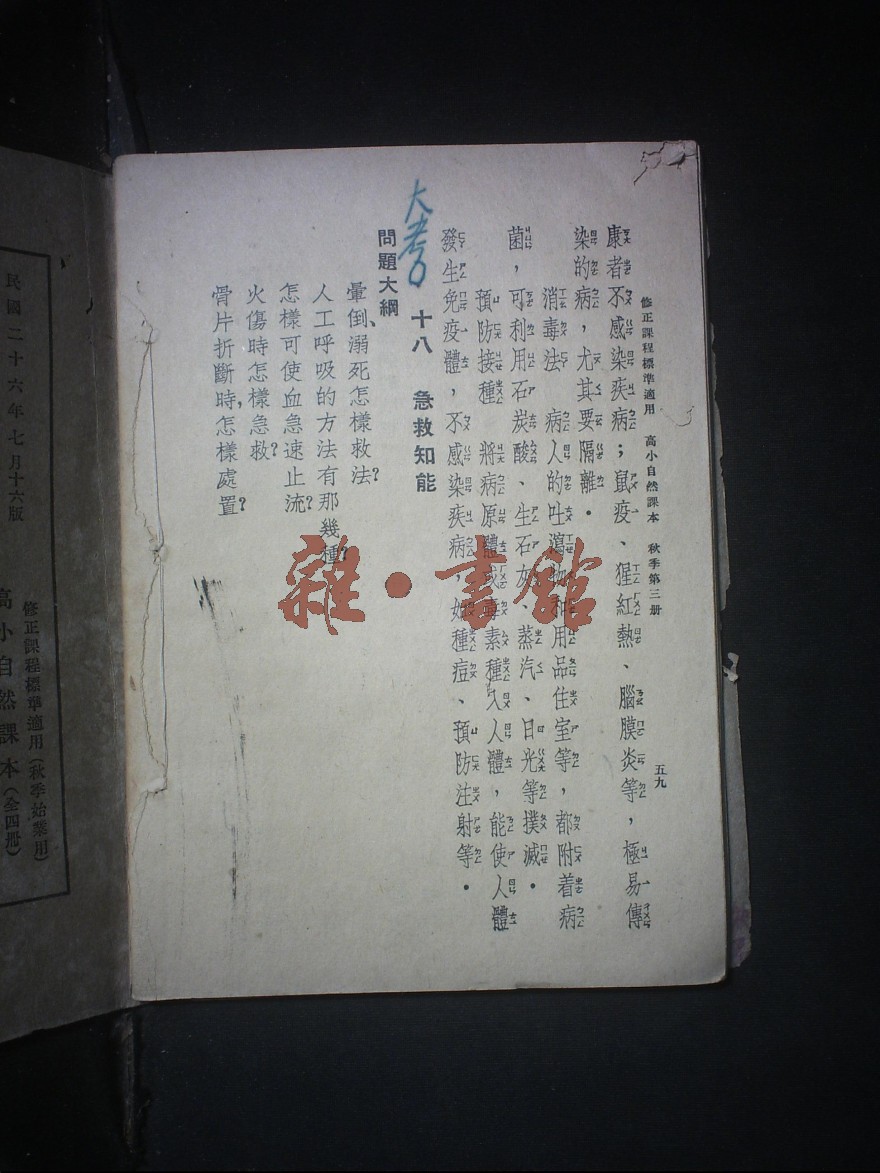 修正課程標準適用　高小自然課本　秋季第三册
五九
康者不感染疾病；鼠疫、猩紅熱、腦膜炎等，極易傳
染的病，尤其要隔離．
消毒法　病人的吐瀉物和用品住室等，都附着病
菌，可利用石炭酸、生石灰、蒸汽、日光等撲滅．
預防接種　將病原體或毒素種入人體，能使人體
發生免疫體，不感染疾病，如種痘、預防注射等．
大考
十八　急救知能
問題大綱
暈倒、溺死怎樣救法？
人工呼吸的方法有那幾種？
怎樣可使血急速止流？
火傷時怎樣急救？
骨片折斷時，怎樣處置？
雜·書館
修正課程標準適用（秋季始業用）
高小自然課本（全四册）
民國二十六年七月十六版